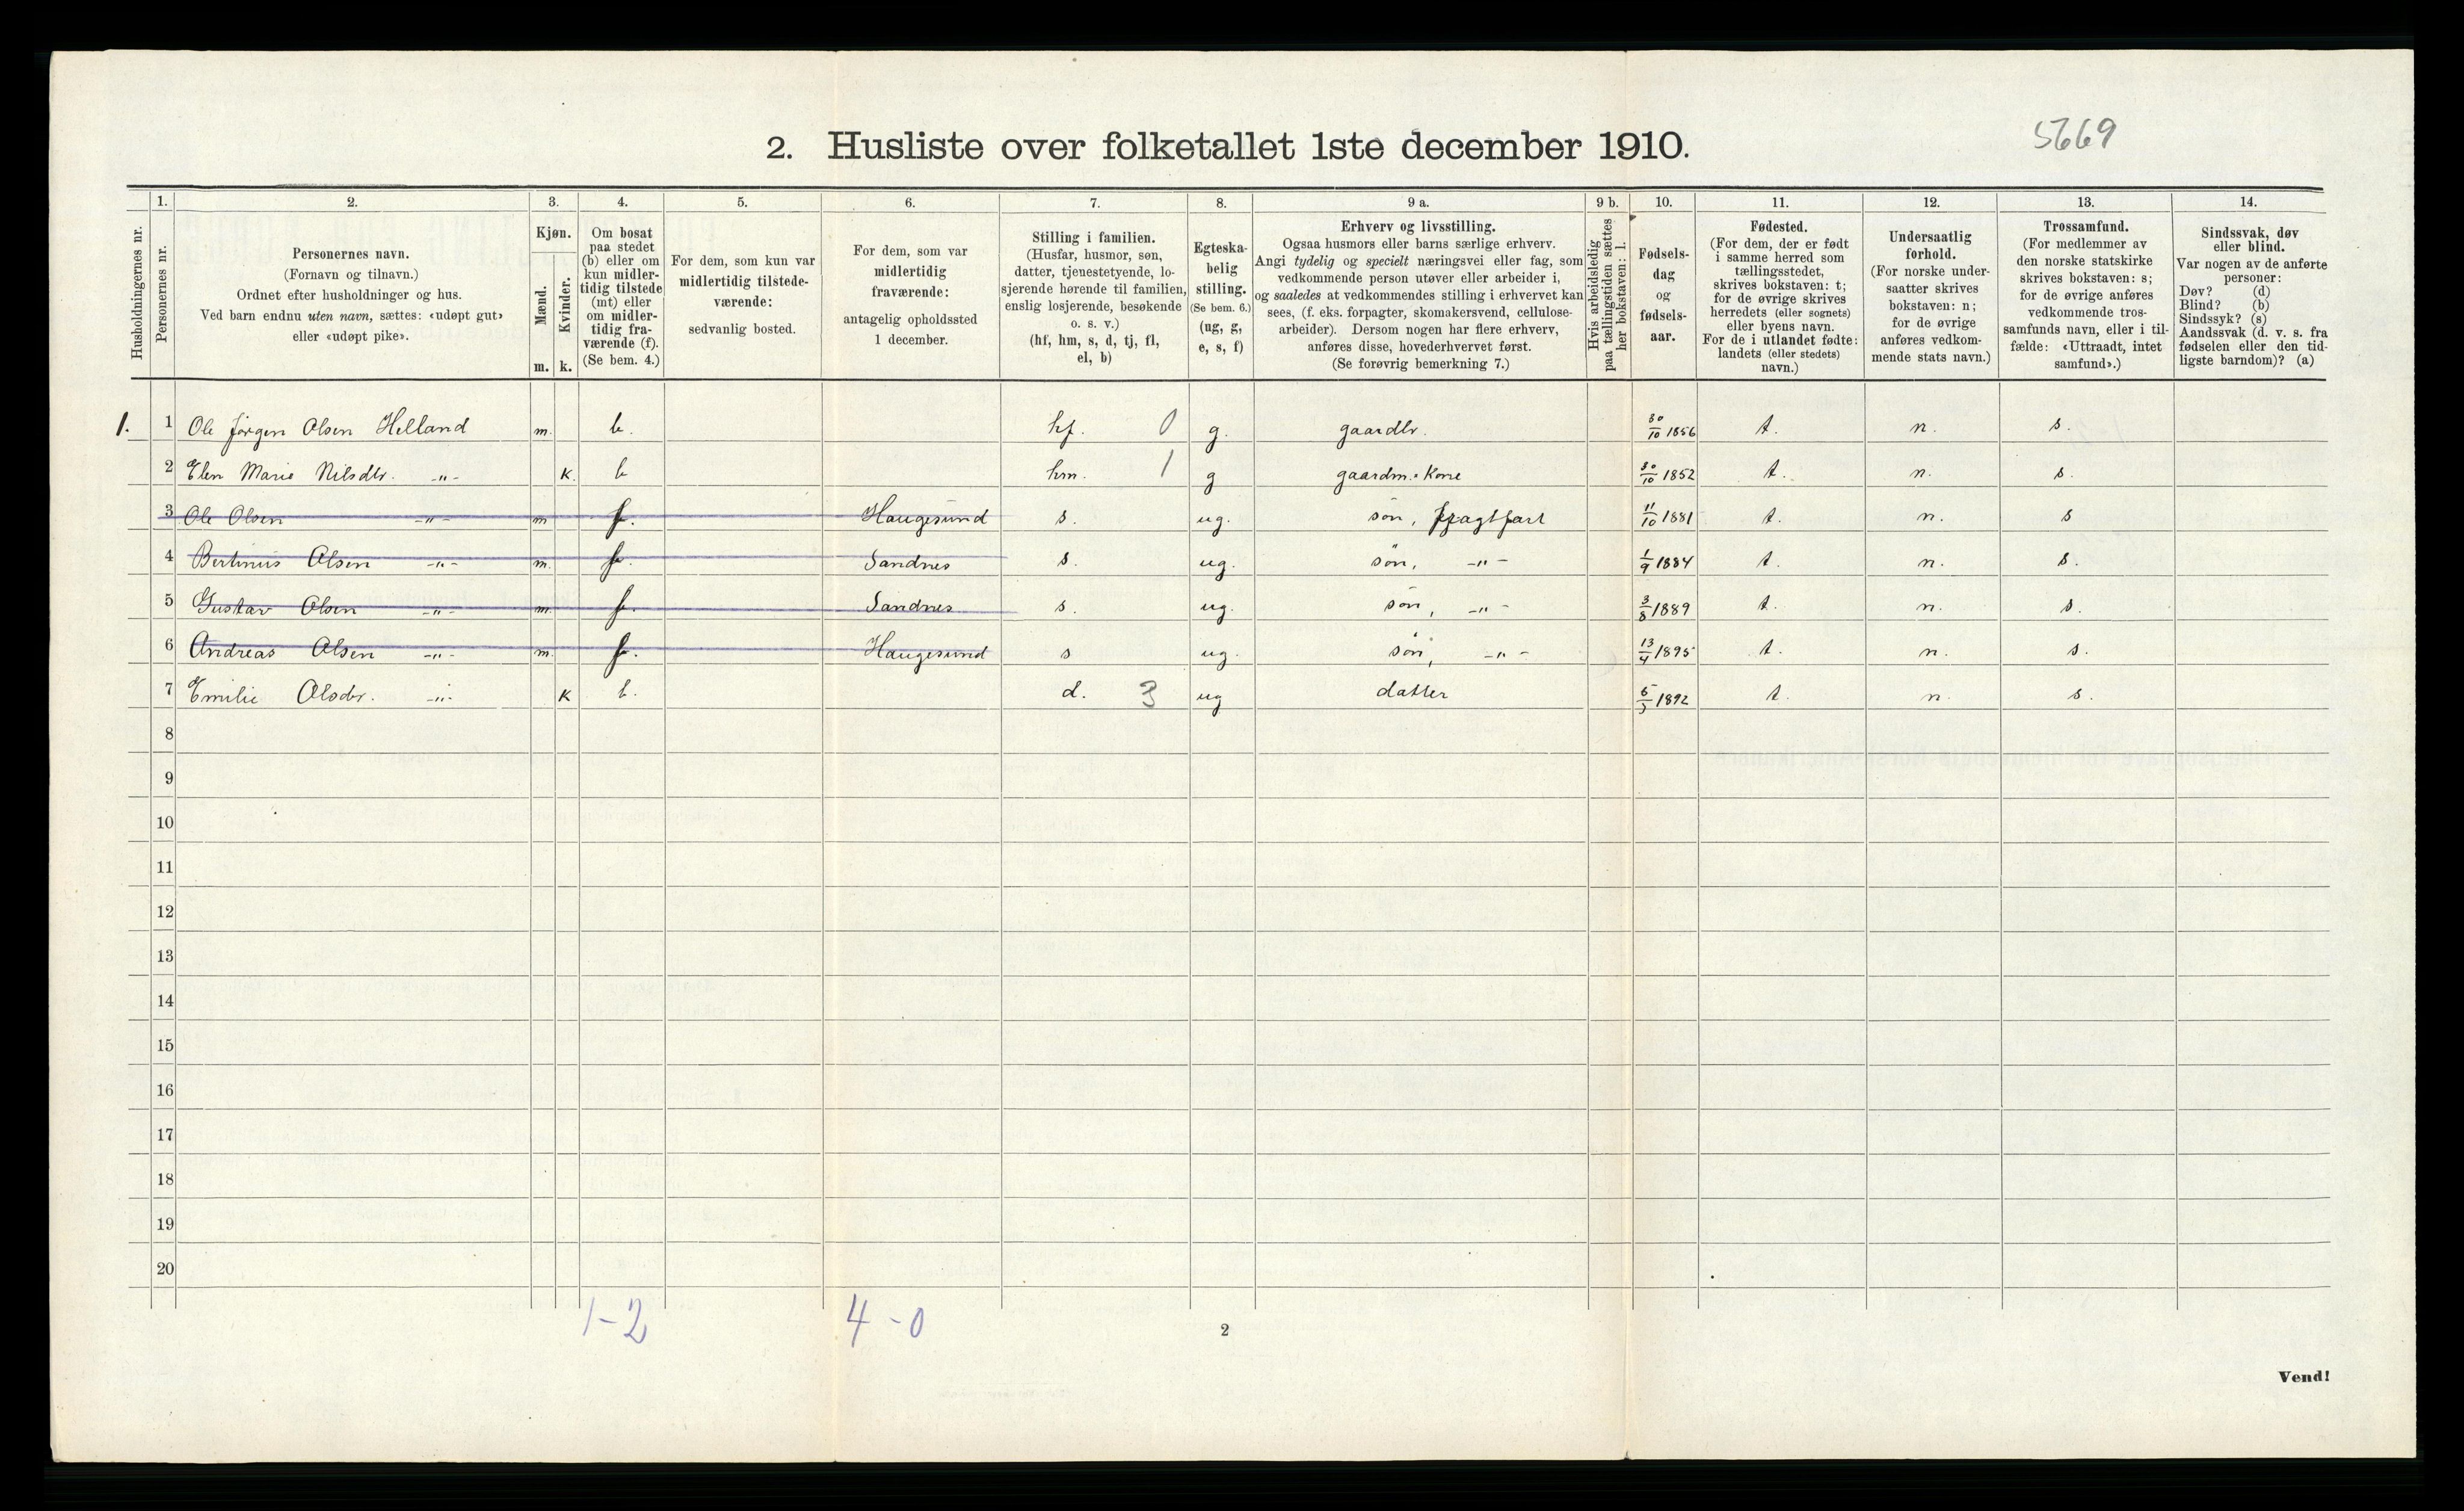 2. Husliste over folketallet 1ste december 1910.
5669
Husholdningernes nr.
1.
Personernes nr.
2.
Personernes navn.
(Fornavn og tilnavn.)
Ordnet efter husholdninger og hus.
Ved barn endnu uten navn, sættes: «udøpt gut»
eller «udøpt pike».
3.
Kjøn.
Mænd.
m.
Kvinder.
k.
4.
Om bosat
paa stedet
(b) eller om
kun midler-
tidig tilstede
(mt) eller
om midler-
tidig fra-
værende (f).
(Se bem. 4.)
5.
For dem, som kun var
midlertidig tilstede-
værende:
sedvanlig bosted.
6.
For dem, som var
midlertidig
fraværende:
antagelig opholdssted
1 december.
7.
Stilling i familien.
(Husfar, husmor, søn,
datter, tjenestetyende, lo-
sjerende hørende til familien,
enslig losjerende, besøkende
o. s. v.)
(hf, hm, s, d, tj, fl,
el, b)
8.
Egteska-
belig
stilling.
(Se bem. 6.)
(ug, g,
e, s, f)
9 a.
Erhverv og livsstilling.
Ogsaa husmors eller barns særlige erhverv.
Angi tydelig og specielt næringsvei eller fag, som
vedkommende person utøver eller arbeider i,
og saaledes at vedkommendes stilling i erhvervet kan
sees, (f. eks. forpagter, skomakersvend, cellulose-
arbeider). Dersom nogen har flere erhverv,
anføres disse, hovederhvervet først.
(Se forøvrig bemerkning 7.)
9 b.
Hvis arbeidsledig
paa tællingstiden sættes
her bokstaven: l.
10.
Fødsels-
dag
og
fødsels-
aar.
11.
Fødested.
(For dem, der er født
i samme herred som
tællingsstedet,
skrives bokstaven: t;
for de øvrige skrives
herredets (eller sognets)
eller byens navn.
For de i utlandet fødte:
landets (eller stedets)
navn.)
12.
Undersaatlig
forhold.
(For norske under-
saatter skrives
bokstaven: n;
for de øvrige
anføres vedkom-
mende stats navn.)
13.
Trossamfund.
(For medlemmer av
den norske statskirke
skrives bokstaven: s;
for de øvrige anføres
vedkommende tros-
samfunds navn, eller i til-
fælde: «Uttraadt, intet
samfund».)
14.
Sindssvak, døv
eller blind.
Var nogen av de anførte
personer:
Døv? (d)
Blind? (b)
Sindssyk? (s)
Aandssvak (d. v. s. fra
fødselen eller den tid-
ligste barndom)? (a)
1. 1 Ole Jørgen Olsen Helland m. b. hf. 0 g. gaardbr. 30/10 1856 t. n. s.
2 Elen Marie Nilsdtr. -"- k. b hm. 1 g gaardm.=kone 30/10 1852 t. n. s.
3 Ole Olsen -"- m f. Haugesund s. ug. søn, fragtfart 11/10 1881 t. n. s
4 Bertinius Olsen -"- m. f. Sandnes s. ug. søn, -"- 1/9 1884 t. n. s.
5 Gustav Olsen -"- m. f. Sandnes s. ug. søn, -"- 3/8 1889 t. n. s.
6 Andreas Olsen -"- m. f. Haugesund s ug. søn, -"- 13/4 1895 t. n. s.
7 Emilie Olsdtr. -"- k b. d. 3 ug datter 1892 t. n. s.
8
9
10
11
12
13
14
15
16
17
18
19
20
1-2 4-0
2
Vend!